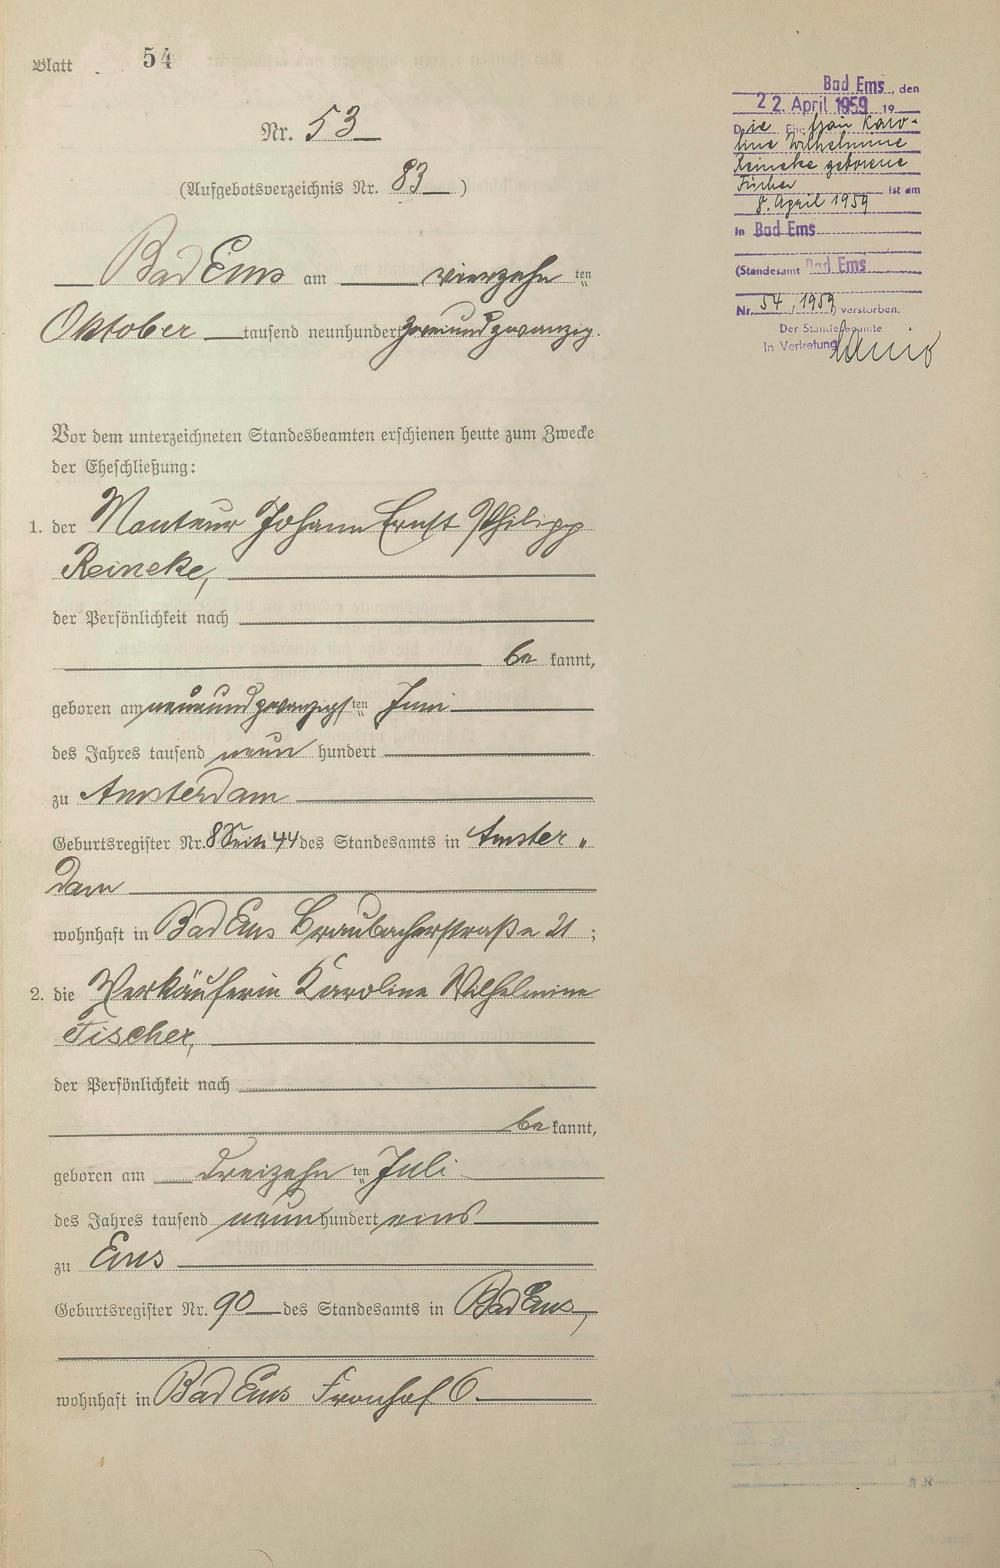 Blatt 54
Nr. 53
(Aufgebotsverzeichnis Nr. 83)
Bad Ems am vierzehnten
Oktober tausend neunhundert zweiundzwanzig.
Vor dem unterzeichneten Standesbeamten erschienen heute zum Zwecke
der Eheschließung:
1. der Monteur Johann Ernst Philipp
Reineke,
der Persönlichkeit nach
be kannt,
geboren am neunundzwanzigsten Juni
des Jahres tausend neun hundert
zu Amsterdam
Geburtsregister Nr. 8 Seite 44 des Standesamts in Amster„
dam
wohnhaft in Bad Ems Braubacherstraße 21;
2. die Verkäuferin Karoline Wilhelmine
Fischer,
der Persönlichkeit nach
be kannt,
geboren am dreizehnten Juli
des Jahres tausend neunhundert eins
zu Ems
Geburtsregister Nr. 90 des Standesamts in Bad Ems,
wohnhaft in Bad Ems Fronhof 6.
Bad Ems, den
22. April 1959 19
Die Ehefrau Karo-
line Wilhelmine
Reineke geborene
Fischer ist am
8. April 1959
in Bad Ems
(Standesamt Bad Ems
Nr. 54, 1959 verstorben.
Der Standesbeamte
In Vertretung